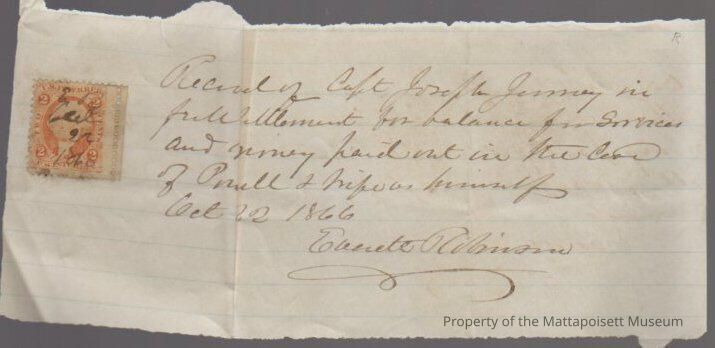 R
Recd of Capt Joseph Jenney in
full settlement for balance for Services
and money paid out in the Case
of Powell & wife vs himself
Oct 22 1866
Everett Robinson
U.S. INTER. REV.
2 2
2 2
Property of the Mattapoisett Museum